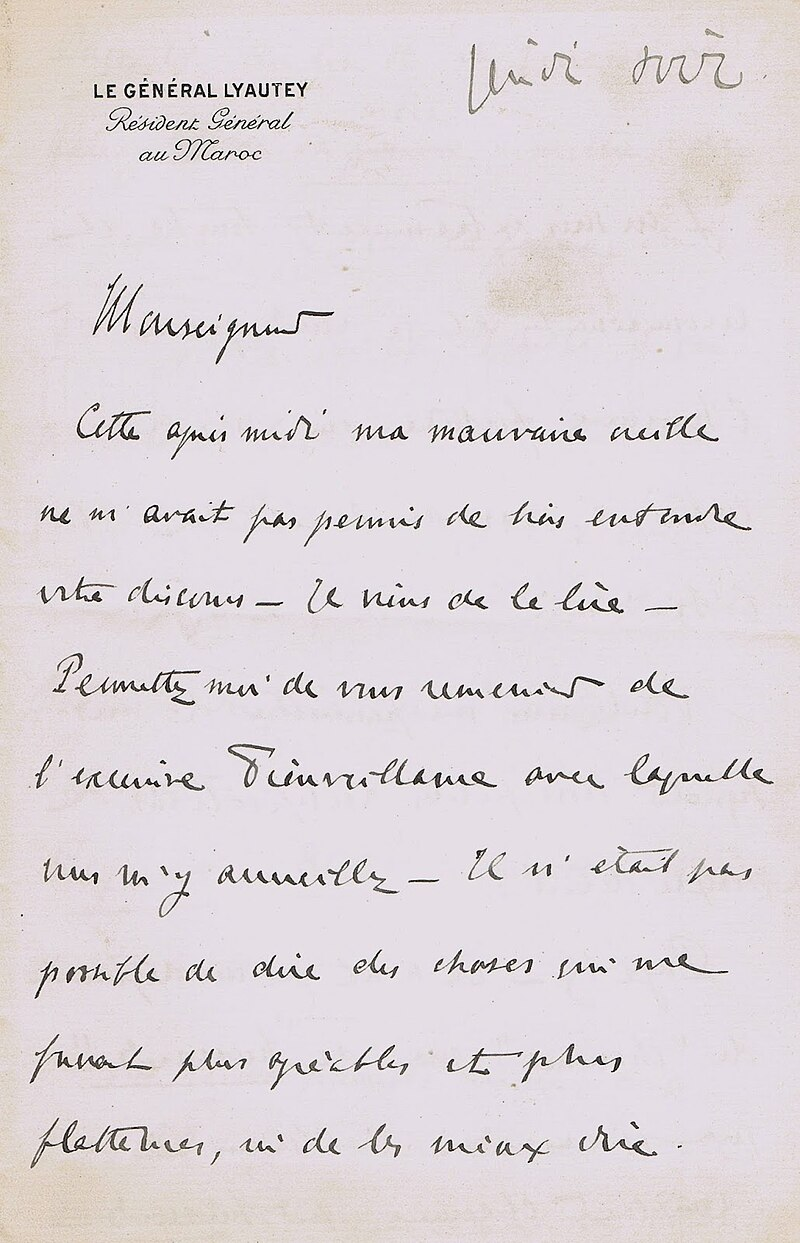 Jeudi soir
LE GÉNÉRAL LYAUTEY
Résident Général
au Maroc
Monseigneur
Cette après midi ma mauvaise oreille
ne m'avait pas permis de bien entendre
votre discours – Je viens de le lire –
Permettez moi de vous remercier de
l'excessive bienveillance avec laquelle
vous m'y accueillez – Il n'était pas
possible de dire des choses qui me
fussent plus agréables et plus
flatteuses, ni de les mieux dire.